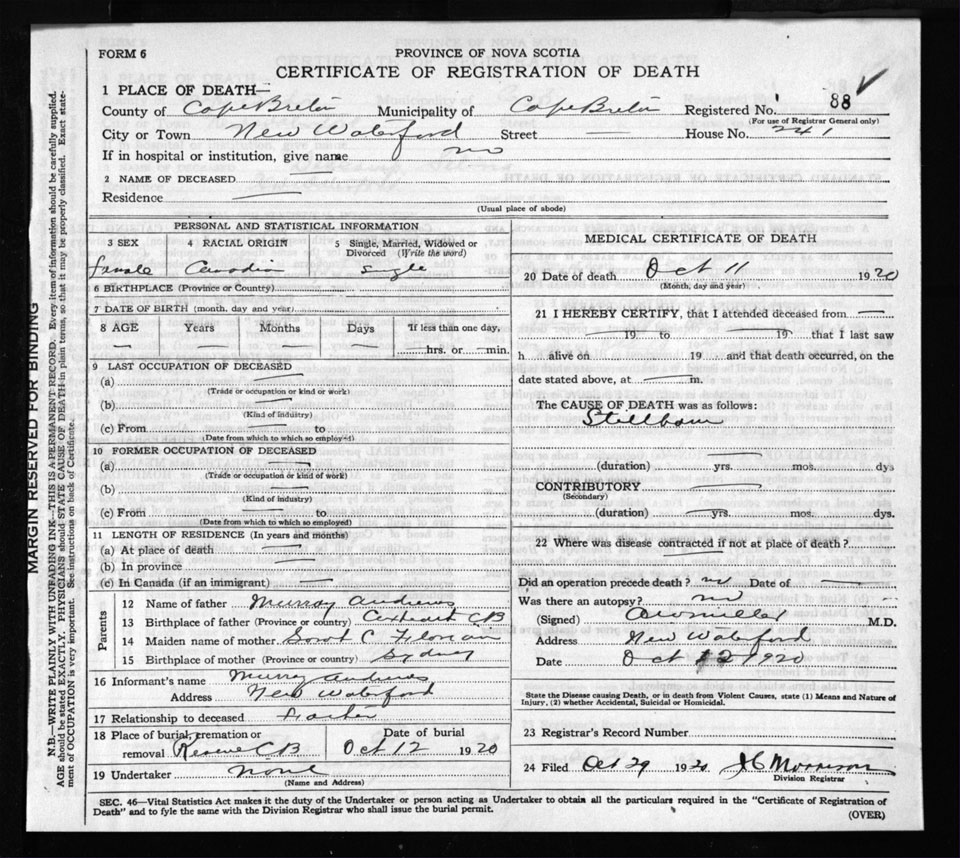 FORM 6
PROVINCE OF NOVA SCOTIA
CERTIFICATE OF REGISTRATION OF DEATH
1 PLACE OF DEATH—
County of Cape Breton Municipality of Cape Breton Registered No. 88
(For use of Registrar General only)
City or Town New Waterford Street — House No. 241
If in hospital or institution, give name no
2 NAME OF DECEASED —
Residence —
(Usual place of abode)
PERSONAL AND STATISTICAL INFORMATION
3 SEX 4 RACIAL ORIGIN 5 Single, Married, Widowed or Divorced (Write the word)
female Canadian single
6 BIRTHPLACE (Province or Country) —
7 DATE OF BIRTH (month, day and year) —
8 AGE Years Months Days If less than one day,
— — — — hrs. or min.
9 LAST OCCUPATION OF DECEASED
(a) —
(Trade or occupation or kind of work)
(b) —
(Kind of industry)
(c) From — to
(Date from which to which so employed)
10 FORMER OCCUPATION OF DECEASED
(a) —
(Trade or occupation or kind of work)
(b) —
(Kind of industry)
(c) From — to
(Date from which to which so employed)
11 LENGTH OF RESIDENCE (In years and months)
(a) At place of death —
(b) In province —
(c) In Canada (if an immigrant) —
Parents
12 Name of father Murray Andrews
13 Birthplace of father (Province or country) CB
14 Maiden name of mother C
15 Birthplace of mother (Province or country) Sydney
16 Informant's name Murray Andrews
Address New Waterford
17 Relationship to deceased Father
18 Place of burial, cremation or removal Reserve CB Date of burial Oct 12 1920
19 Undertaker none
(Name and Address)
MEDICAL CERTIFICATE OF DEATH
20 Date of death Oct 11 1920
(Month, day and year)
21 I HEREBY CERTIFY, that I attended deceased from —
— 19 to — 19 that I last saw
h alive on 19 and that death occurred, on the
date stated above, at — m.
The CAUSE OF DEATH was as follows:
Stillborn
(duration) — yrs. mos. dys
CONTRIBUTORY —
(Secondary)
(duration) — yrs. mos. dys.
22 Where was disease contracted if not at place of death? —
Did an operation precede death? no Date of —
Was there an autopsy? no
(Signed) M.D.
Address New Waterford
Date Oct 12 1920
State the Disease causing Death, or in death from Violent Causes, state (1) Means and Nature of
Injury, (2) whether Accidental, Suicidal or Homicidal.
23 Registrar's Record Number
24 Filed Oct 29 1920 Morrison
Division Registrar
SEC. 46—Vital Statistics Act makes it the duty of the Undertaker or person acting as Undertaker to obtain all the particulars required in the "Certificate of Registration of
Death" and to fyle the same with the Division Registrar who shall issue the burial permit.
(OVER)
MARGIN RESERVED FOR BINDING
N.B.—WRITE PLAINLY WITH UNFADING INK—THIS IS A PERMANENT RECORD. Every item of information should be carefully supplied.
AGE should be stated EXACTLY. PHYSICIANS should STATE CAUSE OF DEATH in plain terms, so that it may be properly classified. Exact state-
ment of OCCUPATION is very important. See instructions on back of Certificate.